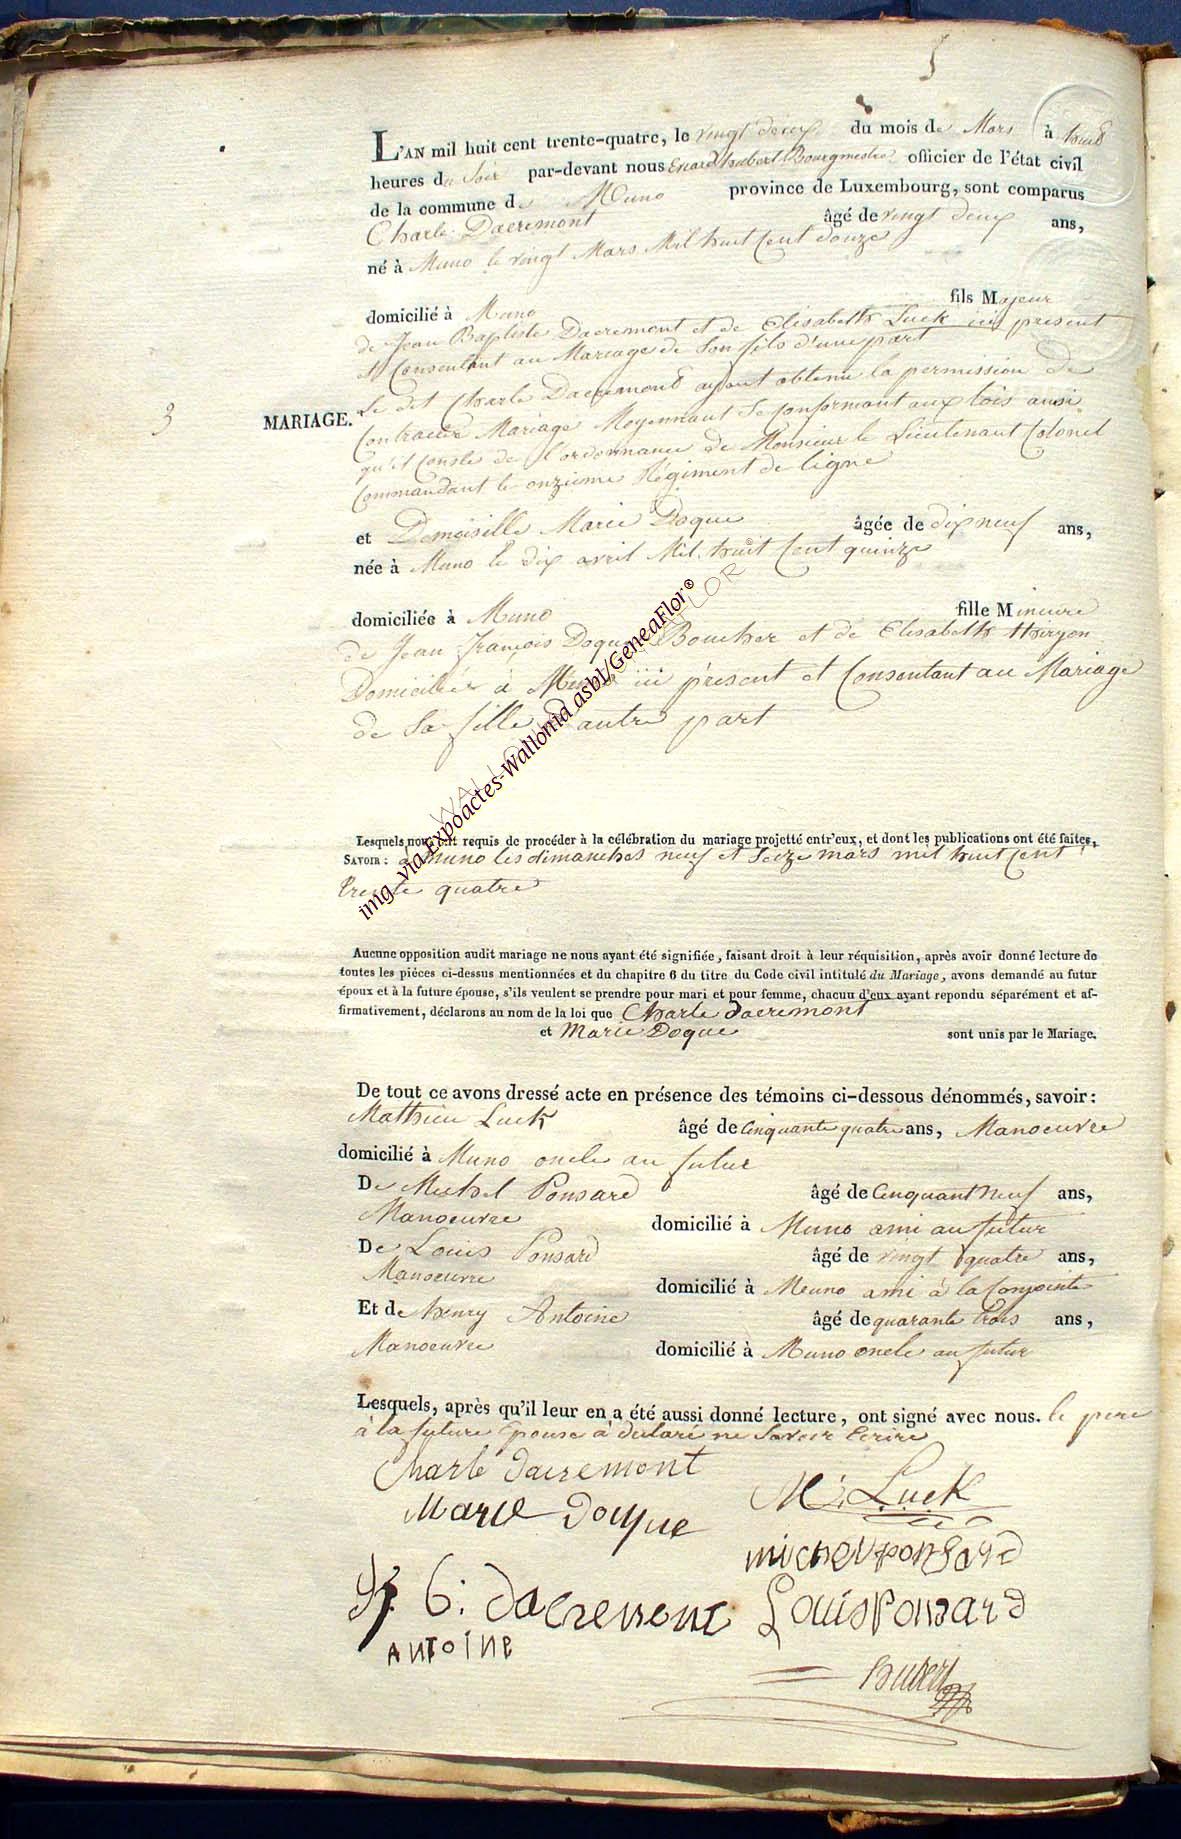 5
L'AN mil huit cent trente-quatre, le vingt deux du mois de Mars à huit
heures du Soir par-devant nous Evrard hubert Bourgmestre officier de l'état civil
de la commune de Muno province de Luxembourg, sont comparus
Charle Dacremont âgé de vingt deux ans,
né à Muno le vingt Mars Mil huit Cent douze
domicilié à Muno fils Majeur
de Jean Baptiste Dacremont et de Elisabeth Luck ici présent
et Consentant au Mariage de Son fils d'une part
3
MARIAGE.
Le dit Charle Dacremont ayant obtenu la permission de
Contracter Mariage Moyennant Se Conformant aux lois ainsi
qu'il Conste de l'ordonnance de Monsieur le Lieutenant Colonel
Commandant le onzieme Régiment de ligne
et Demoiselle Marie Doque âgée de dix neuf ans,
née à Muno le dix avril Mil huit Cent quinze
domiciliée à Muno fille Mineure
de Jean françois Doque Boucher et de Elisabeth thiryon
Domiciliés à Muno ici présent et Consentant au Mariage
de Sa fille D'autre part
Lesquels nous ont requis de procéder à la célébration du mariage projetté entr'eux, et dont les publications ont été faites,
SAVOIR : à Muno les dimanches neuf et Seize mars mil huit Cent
trente quatre
img via Expoactes-Wallonia asbl/GeneaFlor®
Aucune opposition audit mariage ne nous ayant été signifiée, faisant droit à leur réquisition, après avoir donné lecture de
toutes les pièces ci-dessus mentionnées et du chapitre 6 du titre du Code civil intitulé du Mariage, avons demandé au futur
époux et à la future épouse, s'ils veulent se prendre pour mari et pour femme, chacun d'eux ayant repondu séparément et af-
firmativement, déclarons au nom de la loi que Charle dacremont
et Marie Doque sont unis par le Mariage.
De tout ce avons dressé acte en présence des témoins ci-dessous dénommés, savoir :
Mathieu Luck âgé de Cinquante quatre ans, Manoeuvre
domicilié à Muno oncle au futur
De Michel Ponsard âgé de Cinquant Neuf ans,
Manoeuvre domicilié à Muno ami au futur
De Louis Ponsard âgé de vingt quatre ans,
Manoeuvre domicilié à Muno ami à la Conjointe
Et de henry Antoine âgé de quarante trois ans,
Manoeuvre domicilié à Muno oncle au futur
Lesquels, après qu'il leur en a été aussi donné lecture, ont signé avec nous. le pere
à la future Epouse à déclaré ne Savoir Ecrire
Charle dacremont
M: Luck
Marie Doque
michel ponsard
6: dacremont
Louis Ponsard
ANTOINE
hubert